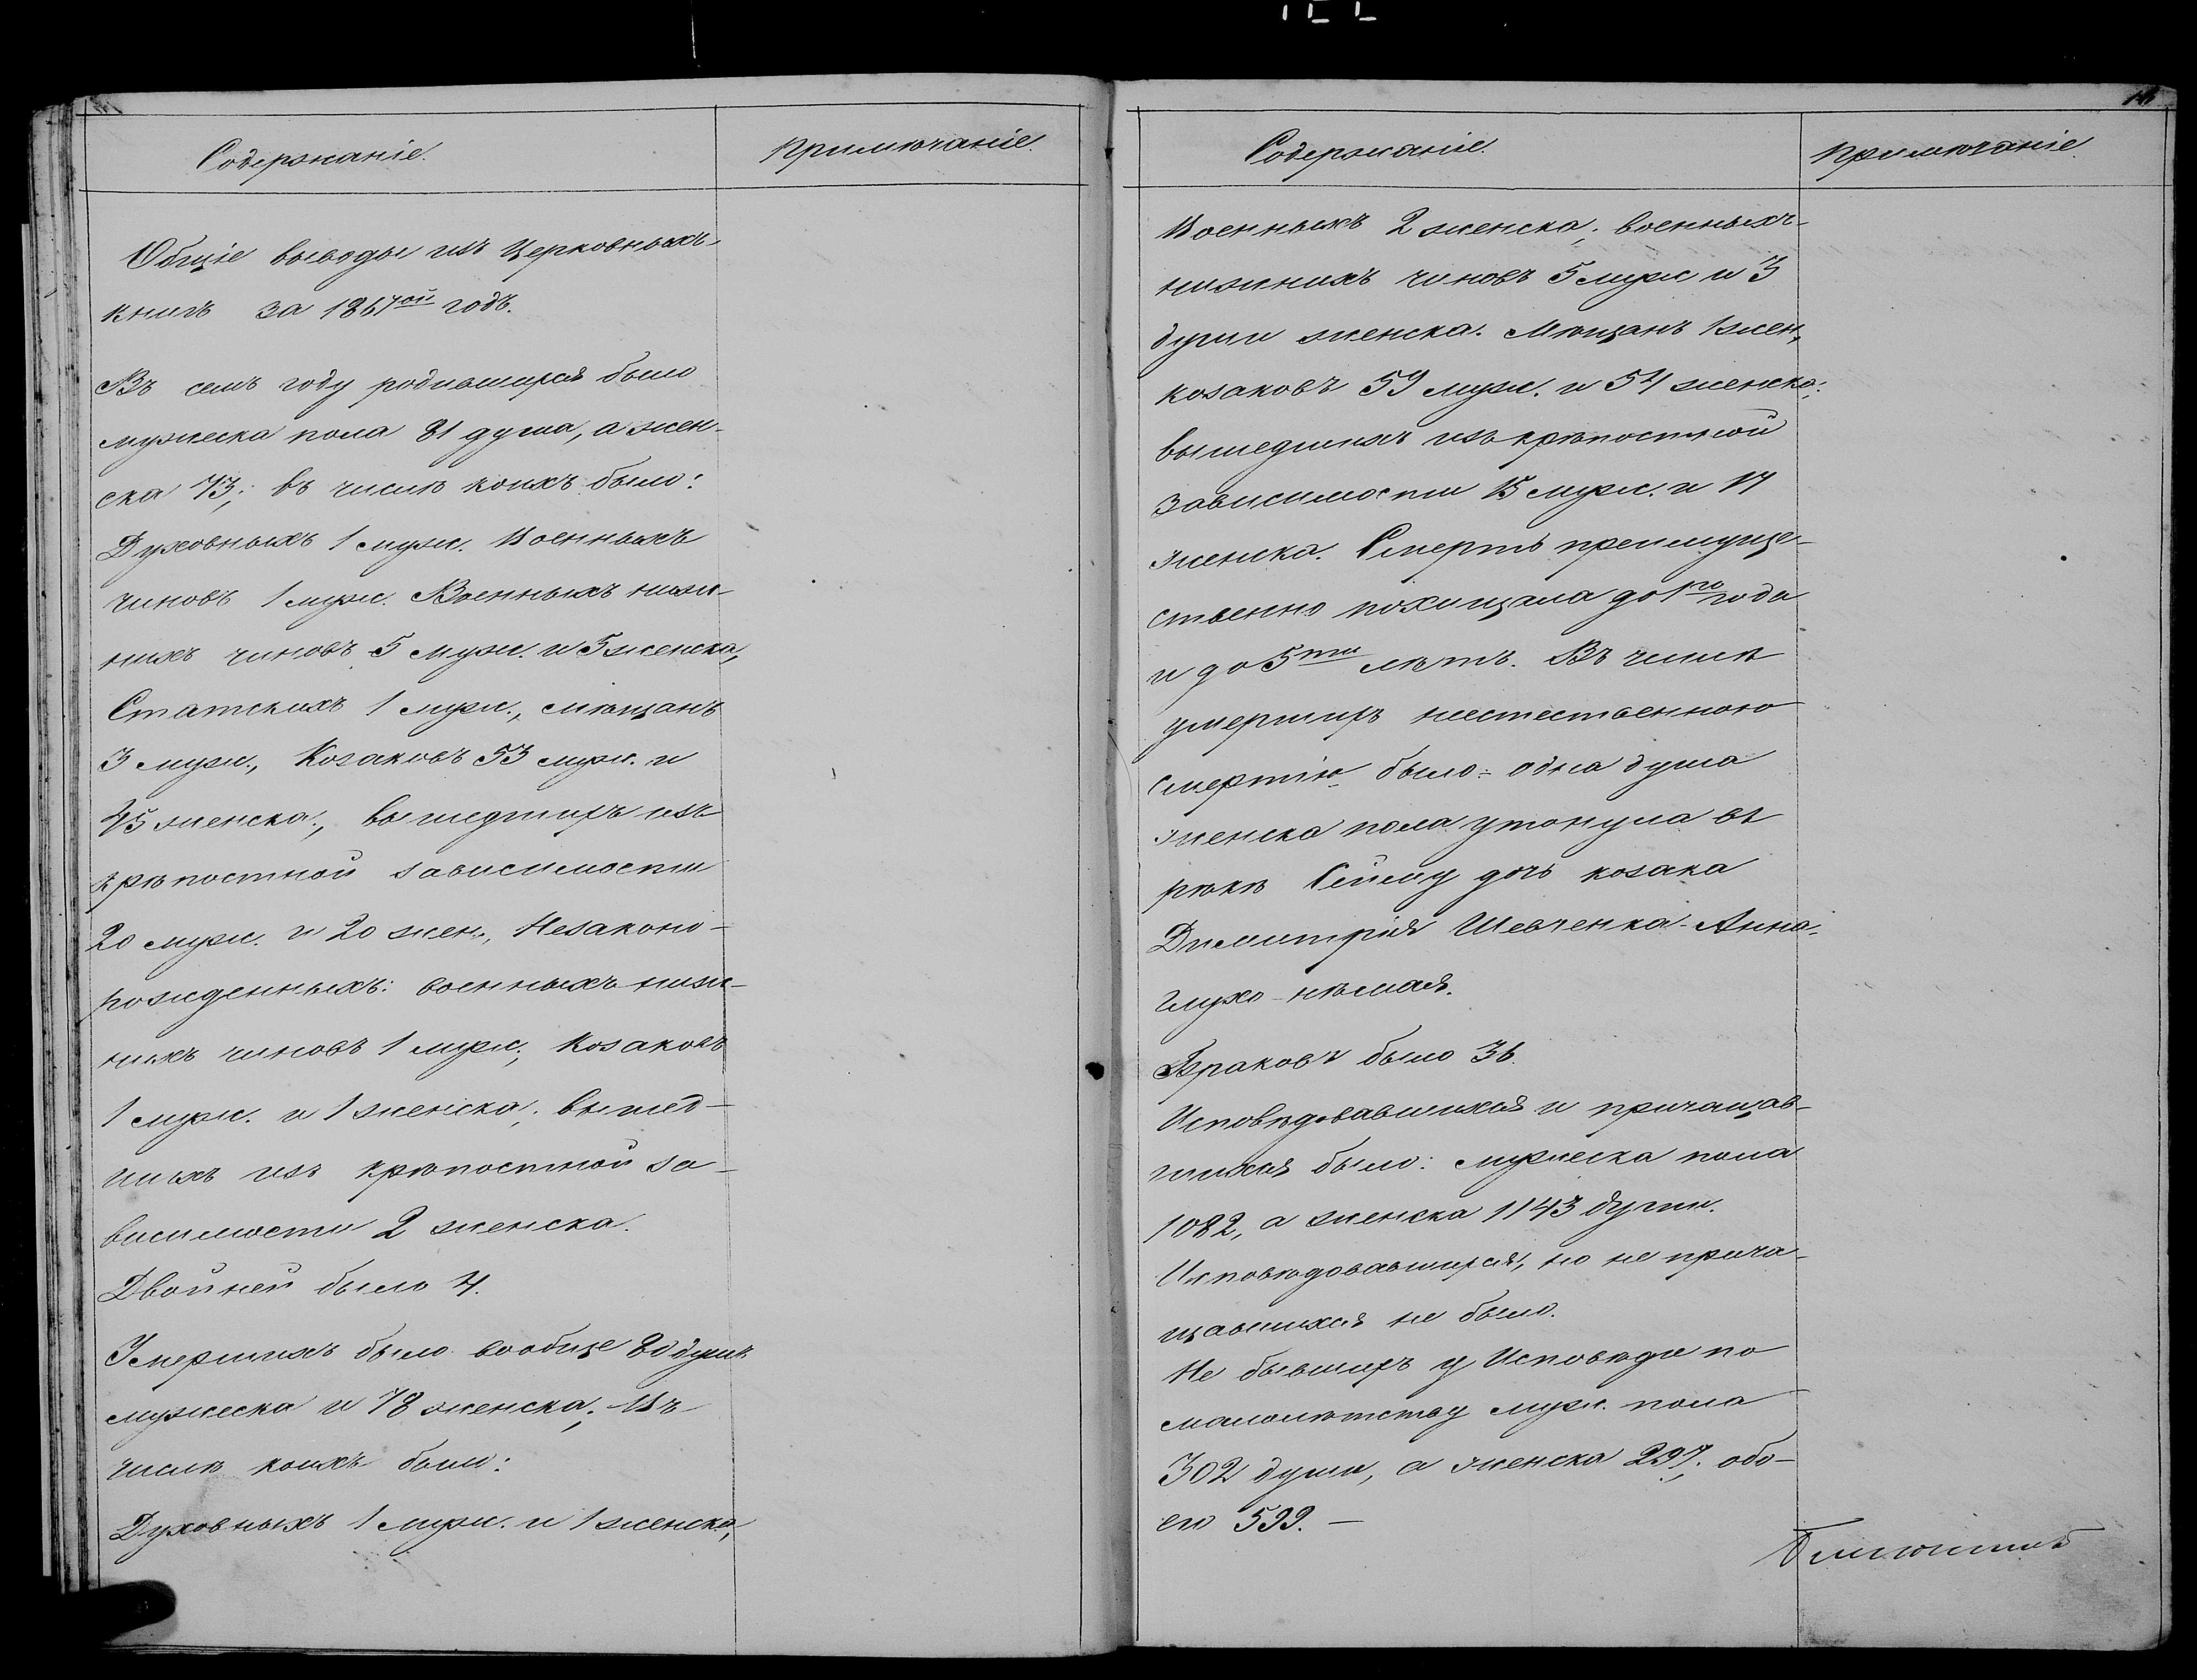 Содержаніе.
Примѣчаніе.
Общіе выводы изъ Церковныхъ
книгъ за 1867ой годъ.
Въ семъ году родившихся было
мужеска пола 81 душа, а жен-
ска 73; въ числѣ коихъ было:
Духовныхъ 1 муж. Военныхъ
чиновъ 1 муж. Военныхъ ниж-
нихъ чиновъ 5 муж. и 5 женска,
Статскихъ 1 муж., мѣщанъ
3 муж., Козаковъ 53 муж. и
45 женска., вышедшихъ изъ
крѣпостной зависимости
20 муж. и 20 жен., Незаконо-
рожденныхъ: военныхъ ниж-
нихъ чиновъ 1 муж; Козаковъ
1 муж. и 1 женска; вышед-
шихъ изъ крѣпостной за-
висимости 2 женска.
Двойней было 4.
Умершихъ было вообще 80 душъ
мужеска и 78 женска; Въ
числѣ коихъ были:
Духовныхъ 1 муж. и 1 женска,
Содержаніе.
Примѣчаніе.
Военныхъ 2 женска; военныхъ
нижнихъ чиновъ 5 муж и 3
души женска. Мѣщанъ 1 жен,
козаковъ 59 муж. и 54 женска;
вышедшихъ изъ крѣпостной
зависимости 15 муж. и 17
женска. Смерть преимуще-
ственно похищала до 1го года
и до 5ти лѣтъ. Въ числѣ
умершихъ неестественною
смертію было: одна душа
женска пола утонула въ
рѣкѣ Сейму дочь козака
Димитрія Шевченка - Анна
глухо-нѣмая.
Браковъ было 36.
Исповѣдовавшихся и причащав-
шихся было: мужеска пола
1082, а женска 1143 души.
Исповѣдовавшихся, но не прича-
щавшихся не было.
Не бывшихъ у Исповѣди по
малолѣтству муж. пола
302 души, а женска 297, обо-
его 599. —